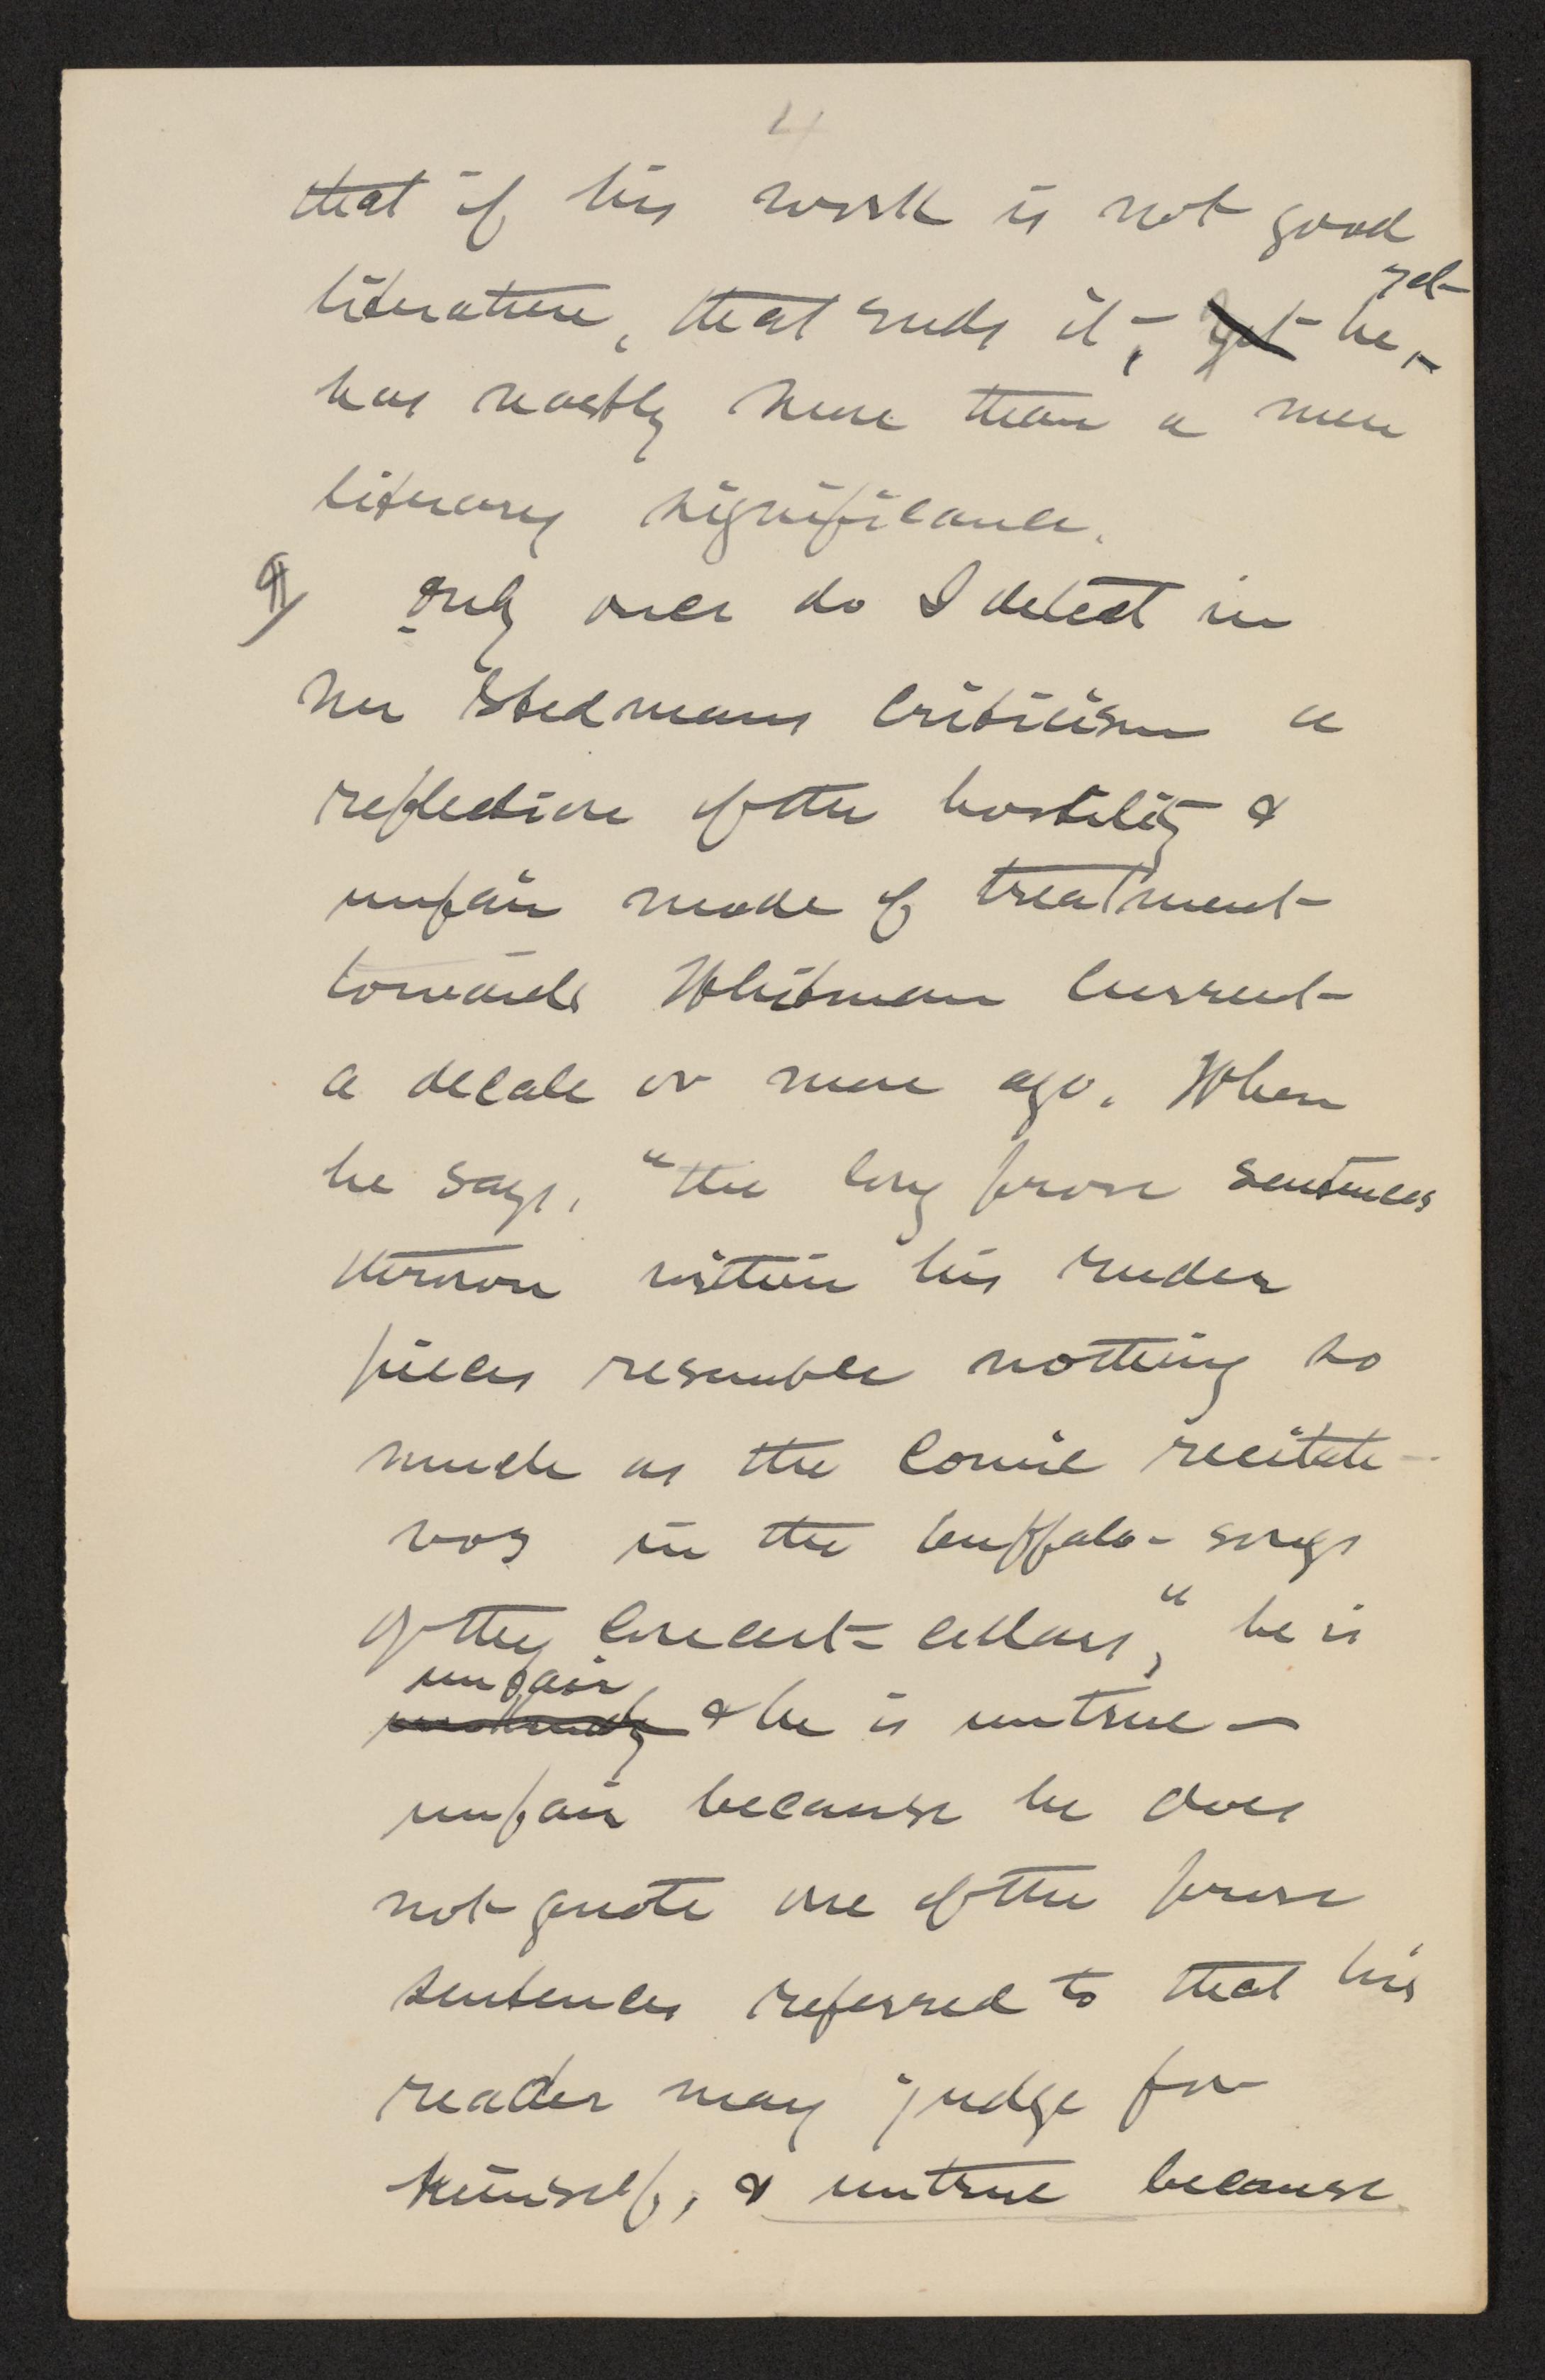 4
that if his work is not good
literature, that ends it, yet he
has vastly more than a mere
literary significance.
¶ Only once do I detect in
Mr Stedmans criticism a
reflection of the hostility &
unfair mode of treatment
towards Whitman current
a decade or more ago. When
he says, "the long prose sentences
thrown within his ruder
pieces resemble nothing so
much as the comic recitati-
vos in the buffalo-songs
of the concert-cellars," he is
unfair
& he is untrue —
unfair because he does
not quote one of the prose
sentences referred to that his
reader may judge for
himself, & untrue because